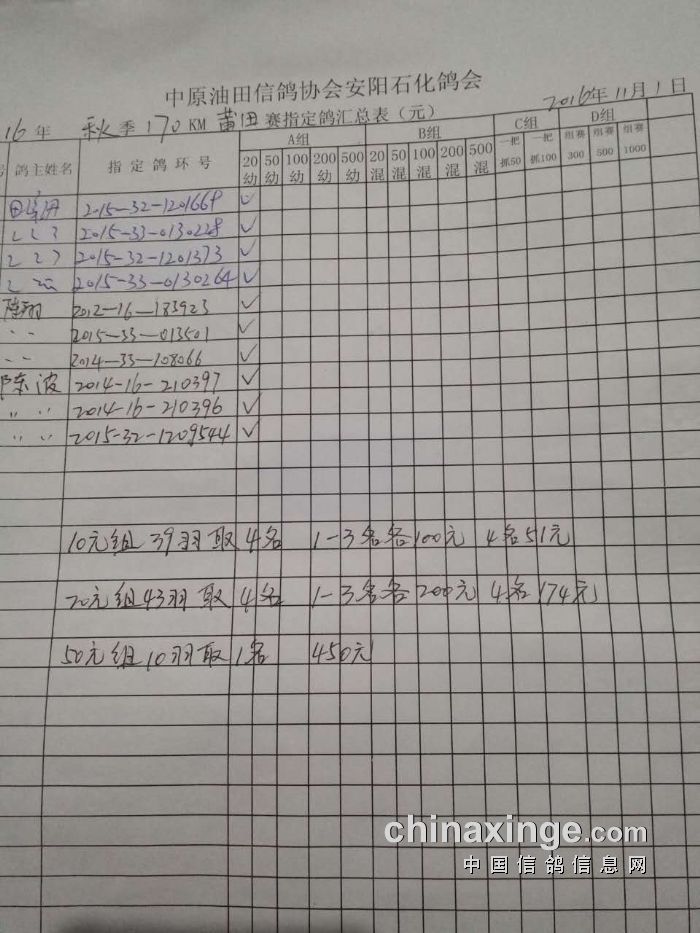 中原油田信鸽协会安阳石化鸽会
2016年11月1日
16年 秋季170KM 黄田赛指定鸽汇总表(元)
号 鸽主姓名 指定鸽环号 A组 B组 C组 D组
20幼 50幼 100幼 200幼 500幼 20混 50混 100混 200混 500混 一把抓50 一把抓100 组赛300 组赛500 组赛1000
2015-32-1201669 ✓
2015-33-0130228 ✓
2015-32-1201373 ✓
2015-33-0130264 ✓
陈翔 2012-16-183923 ✓
2015-33-013501 ✓
2014-33-108066 ✓
陈波 2014-16-210397 ✓
〃 〃 2014-16-210396 ✓
〃 〃 2015-32-1209544 ✓
10元组39羽取4名 1-3名各100元 4名51元
20元组43羽取4名 1-3名各200元 4名174元
50元组10羽取1名 450元
chinaxinge.com
中国信鸽信息网